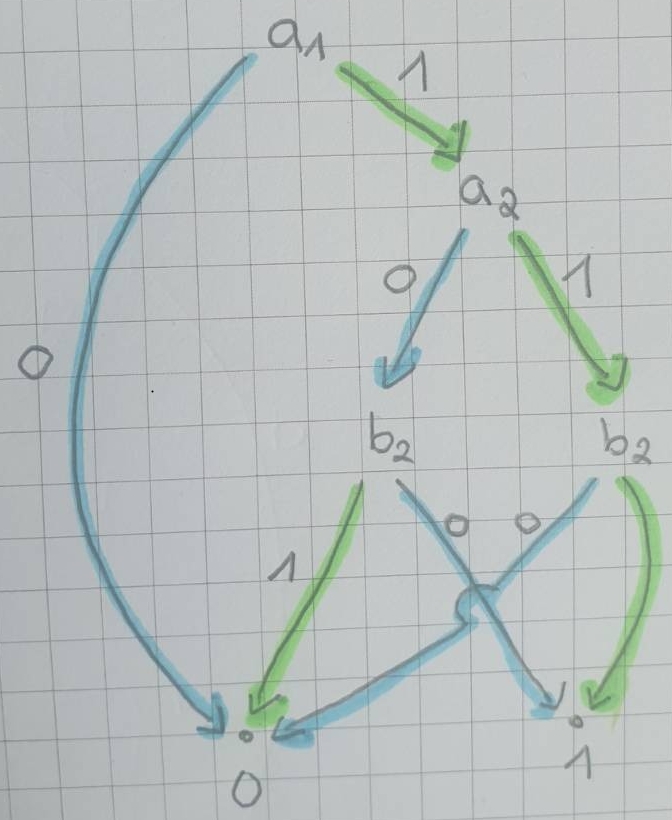 a₁
1
a₂
0 1
0
b₂ b₂
0 0
1
0 1